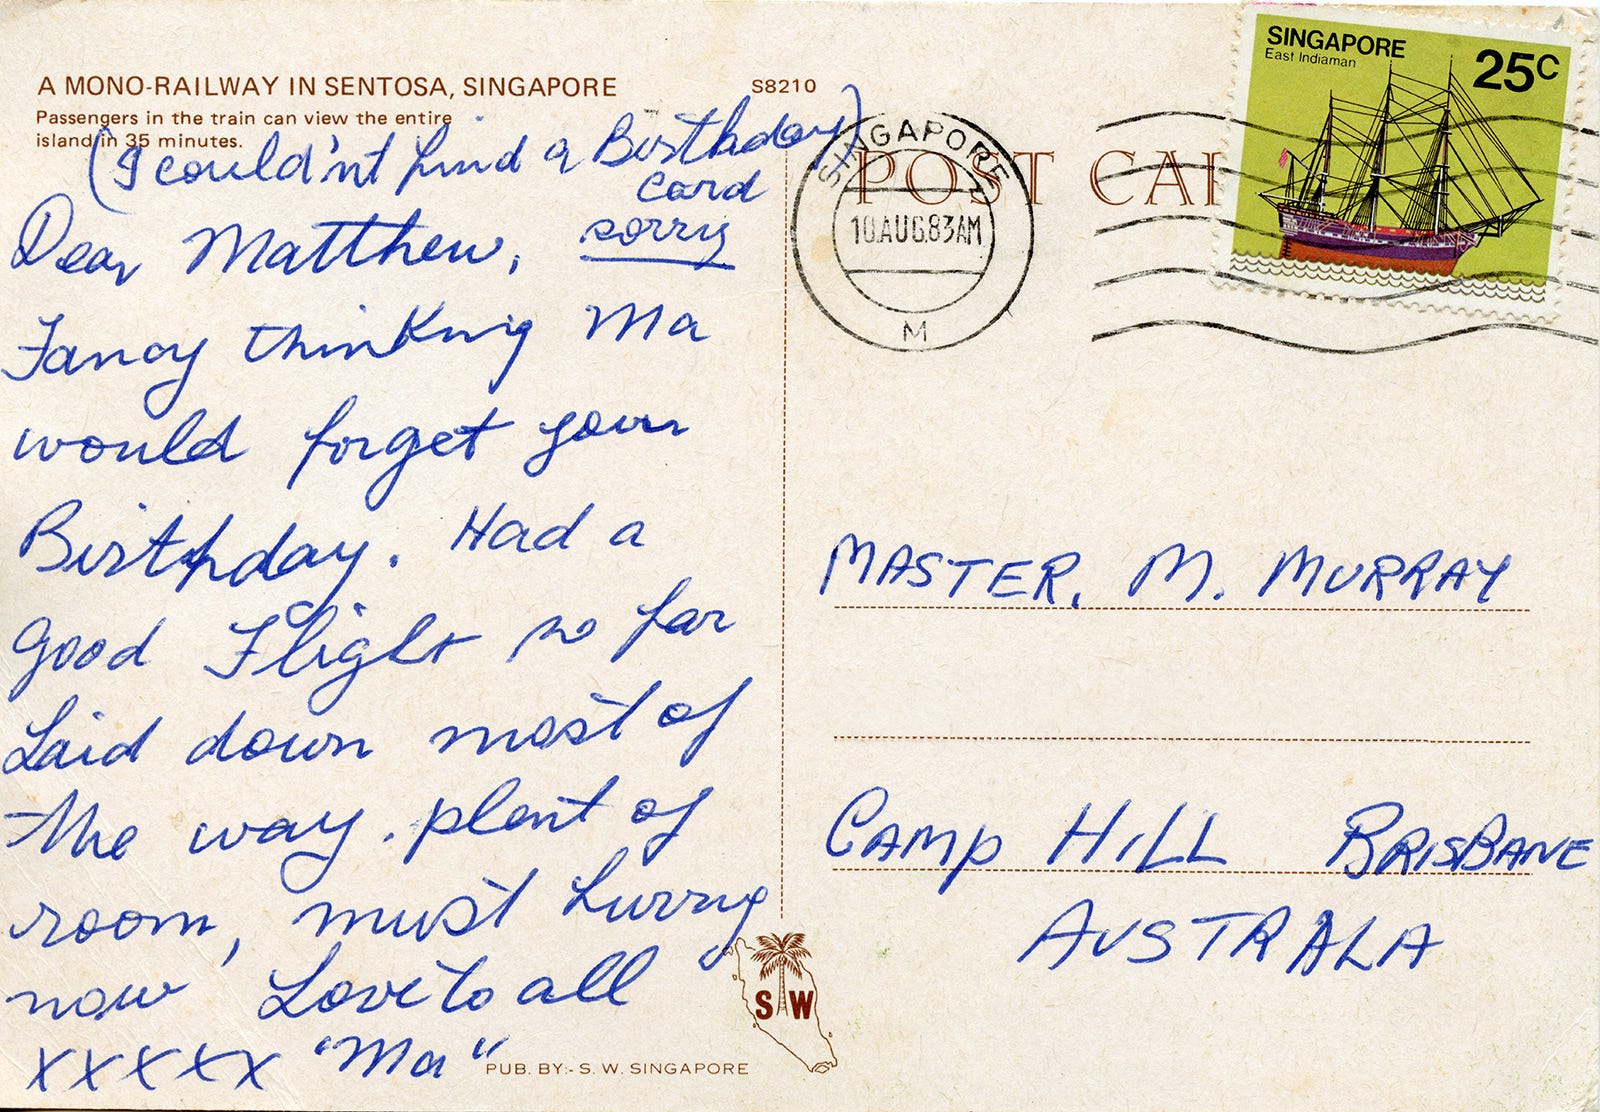 A MONO-RAILWAY IN SENTOSA, SINGAPORE
S8210
Passengers in the train can view the entire
island in 35 minutes.
(I could'nt find a Birthday)
card
sorry
Dear Matthew,
Fancy thinking Ma
would forget your
Birthday. Had a
good Flight so far
Laid down most of
the way. plent of
room, must hurry
now Love to all
xxxxx "Ma"
PUB. BY:- S. W. SINGAPORE
S W
POST CAR
SINGAPORE
10.AUG.83AM
M
SINGAPORE
East Indiaman
25C
MASTER. M. MURRAY
CAMP HILL BRISBANE
AUSTRALA